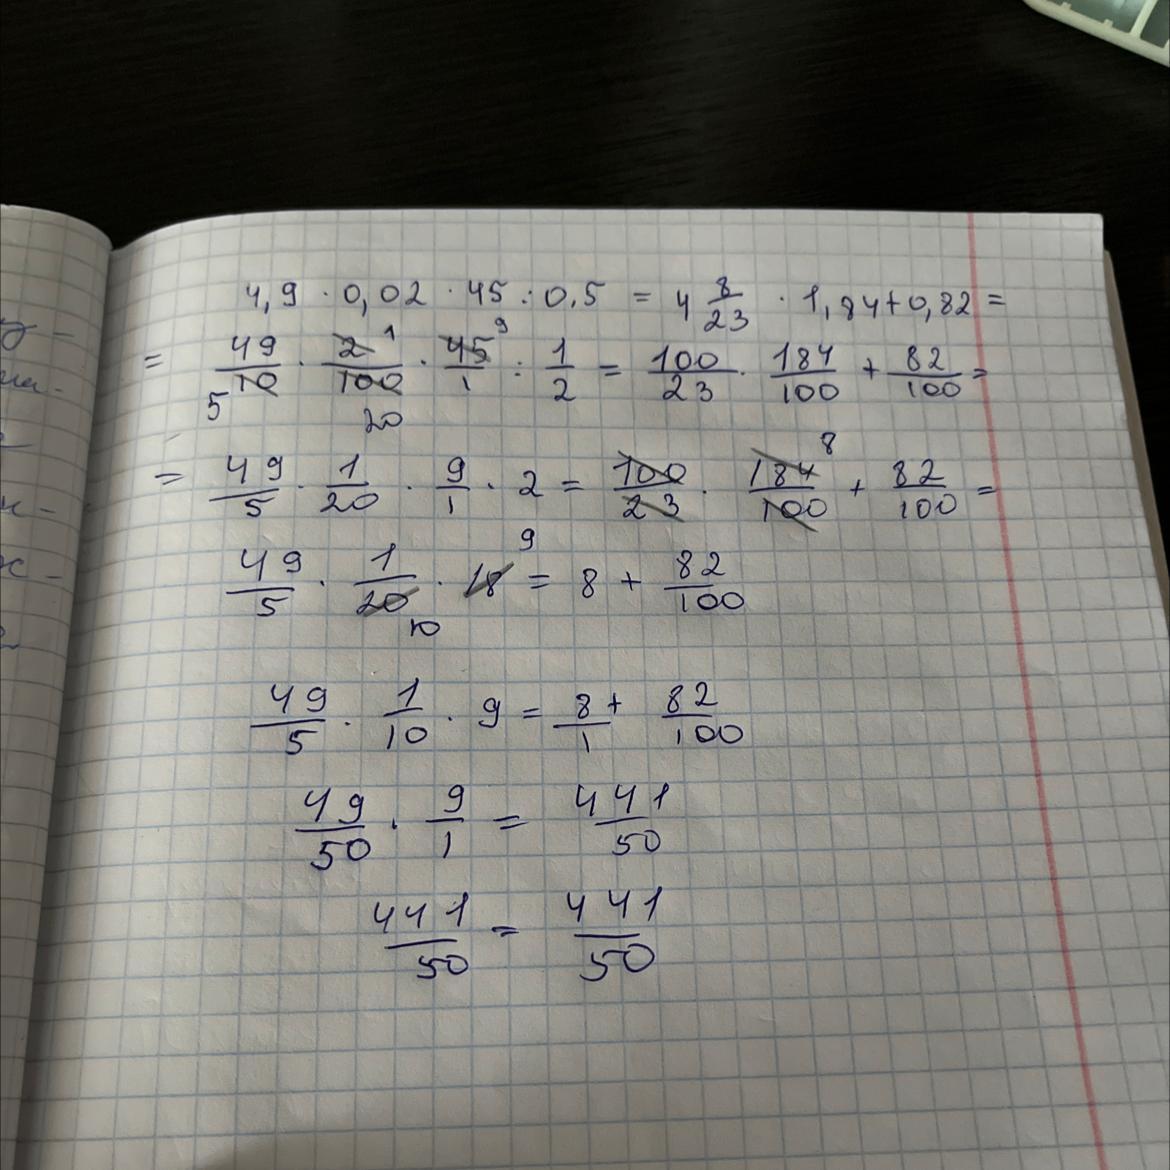 4,9 · 0,02 · 45 : 0.5 = 4 8/23 · 1,84+0,82 =
= 49/10 · 2/100 · 45/1 : 1/2 = 100/23 · 184/100 + 82/100 =
5 1 20 9
= 49/5 · 1/20 · 9/1 · 2 = 100/23 · 184/100 + 82/100 =
8
49/5 · 1/20 · 18 = 8 + 82/100
10 9
49/5 · 1/10 · 9 = 8/1 + 82/100
49/50 · 9/1 = 441/50
441/50 = 441/50